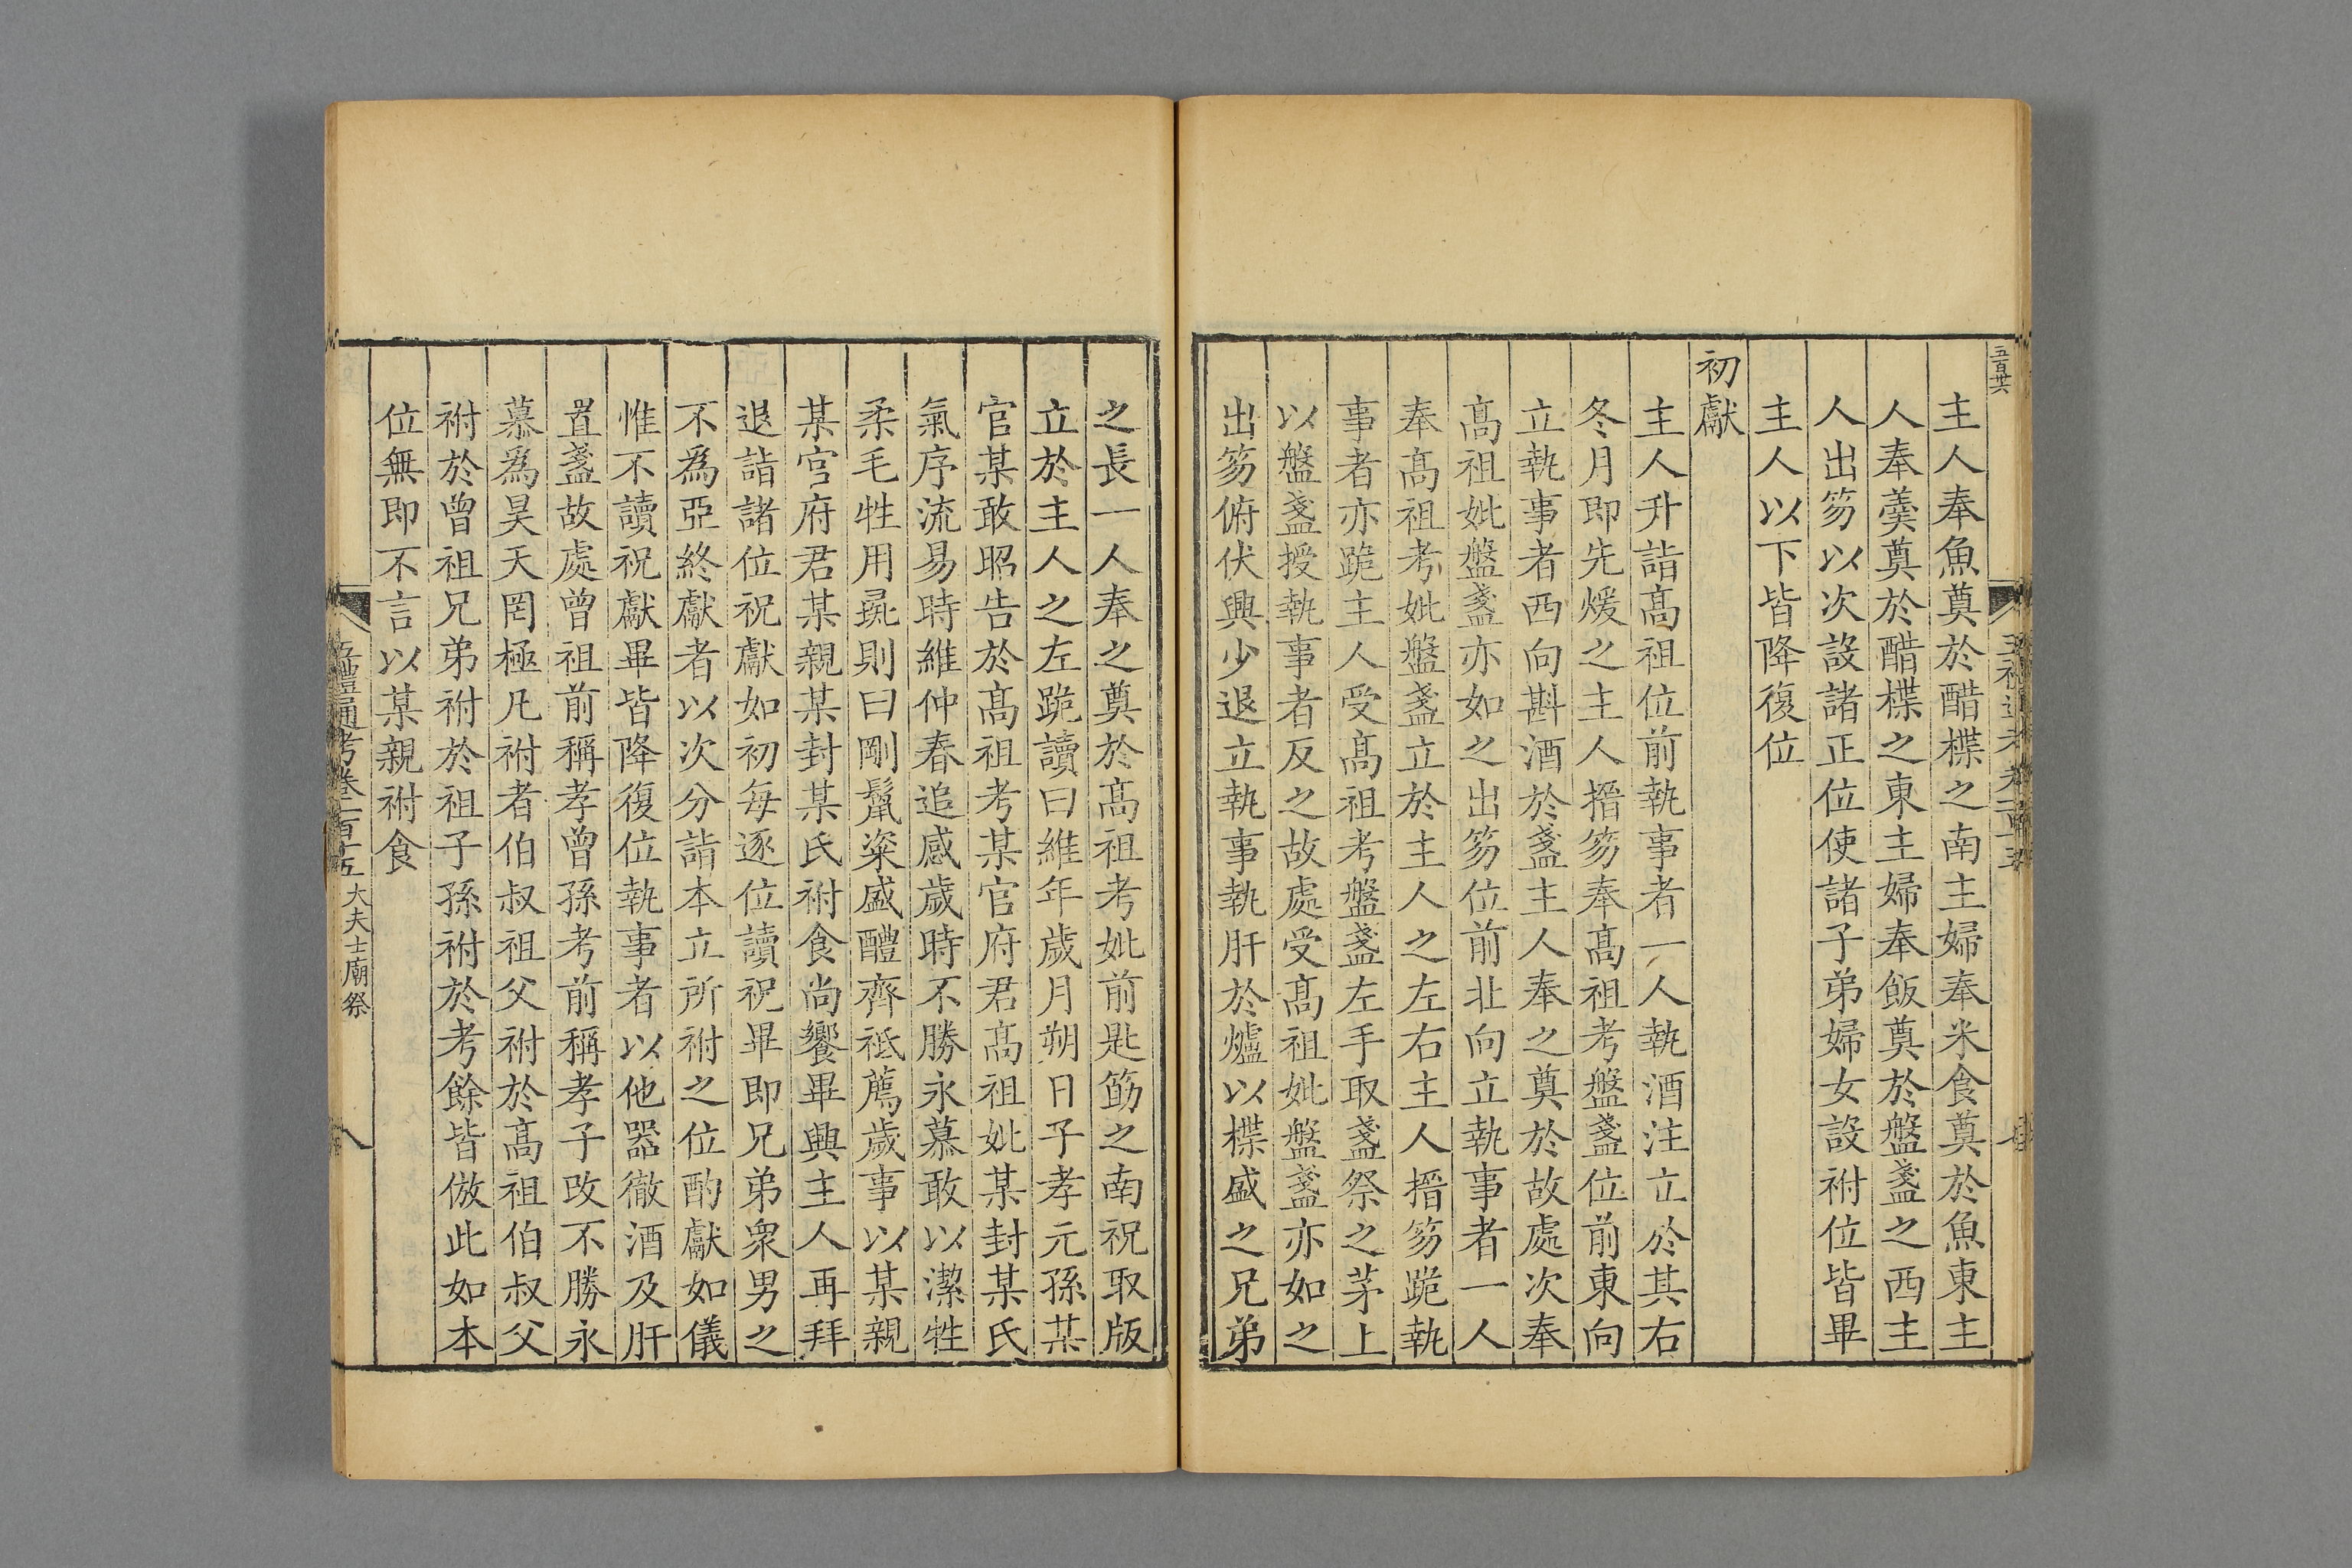 五百廿六
主人奉魚奠於醋楪之南主婦奉米食奠於魚東主
人奉羹奠於醋楪之東主婦奉飯奠於盤盞之西主
人出笏以次設諸正位使諸子弟婦女設祔位皆畢
主人以下皆降復位
初獻
主人升詣髙祖位前執事者一人執酒注立於其右
冬月即先煖之主人搢笏奉髙祖考盤盞位前東向
立執事者西向斟酒於盞主人奉之奠於故處次奉
髙祖妣盤盞亦如之出笏位前北向立執事者一人
奉髙祖考妣盤盞立於主人之左右主人搢笏跪執
事者亦跪主人受髙祖考盤盞左手取盞祭之茅上
以盤盞授執事者反之故處受髙祖妣盤盞亦如之
出笏俯伏興少退立執事執肝於爐以楪盛之兄弟
之長一人奉之奠於髙祖考妣前匙筯之南祝取版
立於主人之左跪讀曰維年歲月朔日子孝元孫某
官某敢昭告於髙祖考某官府君髙祖妣某封某氏
氣序流易時維仲春追感歲時不勝永慕敢以潔牲
柔毛牲用彘則曰剛鬛粢盛醴齊祗薦歲事以某親
某官府君某親某封某氏祔食尚饗畢興主人再拜
退詣諸位祝獻如初每逐位讀祝畢即兄弟衆男之
不爲亞終獻者以次分詣本立所祔之位酌獻如儀
惟不讀祝獻畢皆降復位執事者以他器徹酒及肝
置盞故處曾祖前稱孝曾孫考前稱孝子改不勝永
慕爲昊天罔極凡祔者伯叔祖父祔於髙祖伯叔父
祔於曾祖兄弟祔於祖子孫祔於考餘皆倣此如本
位無即不言以某親祔食
五禮通考卷一百十五 大夫士廟祭